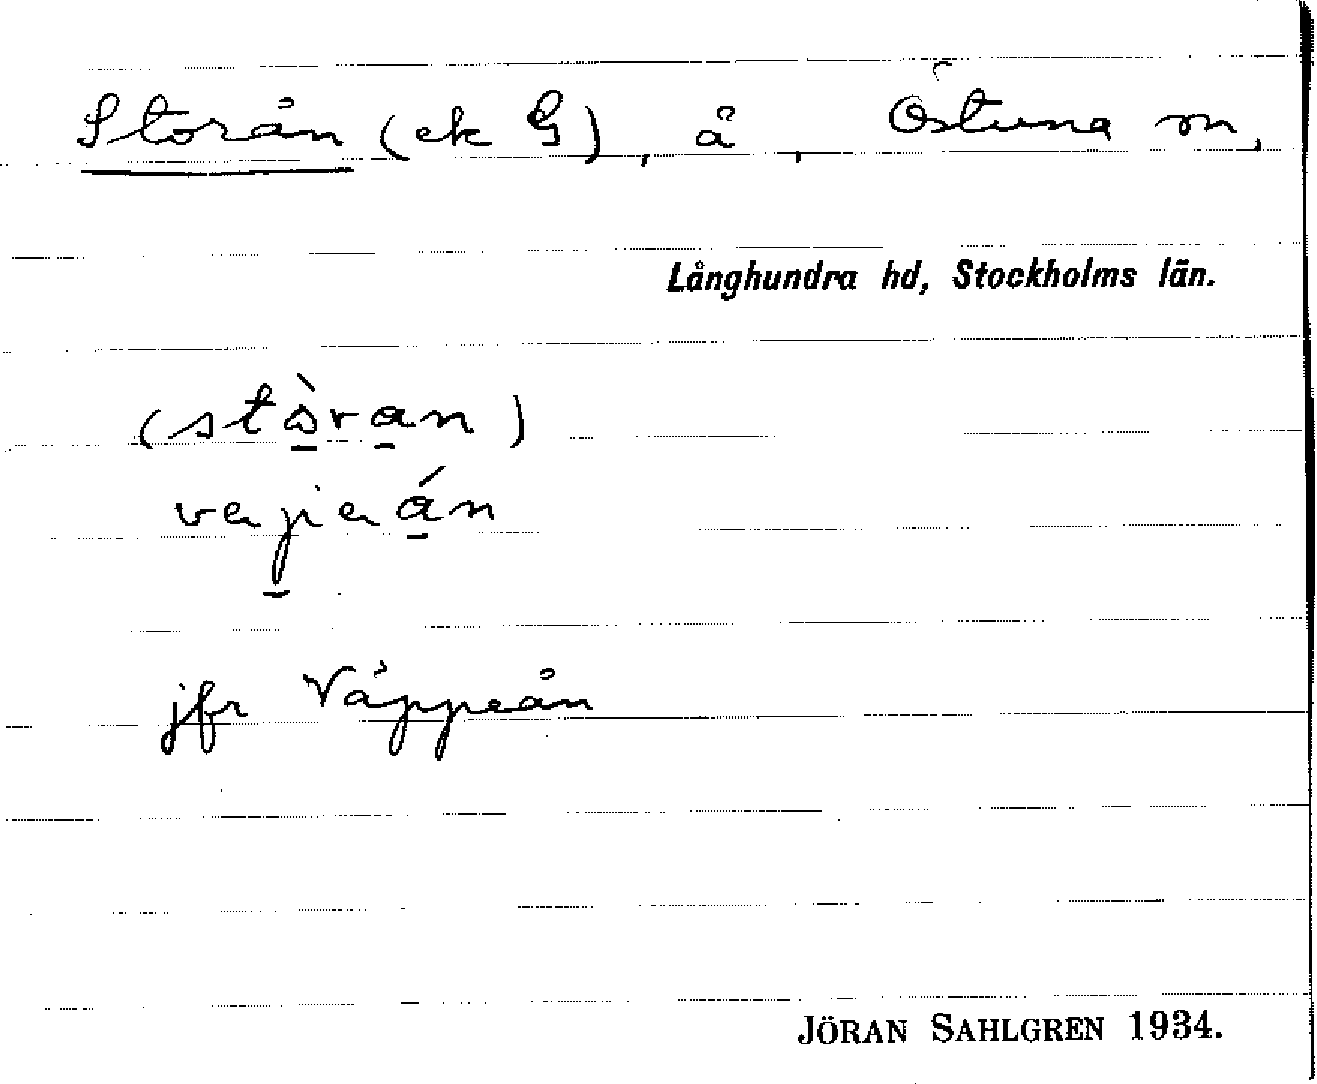 Storån (ek G), å, Östuna sn,
Långhundra hd, Stockholms län.
(stòran)
jfr Väppeån
JÖRAN SAHLGREN 1934.